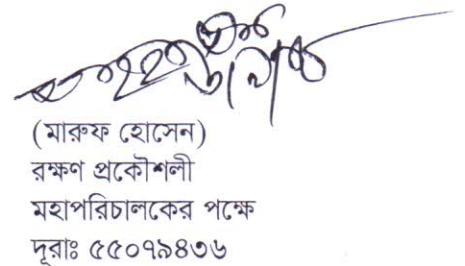 (মারুফ হোসেন)
রক্ষণ প্রকৌশলী
মহাপরিচালকের পক্ষে
দূরাঃ ৫৫০৭৯৪৩৬